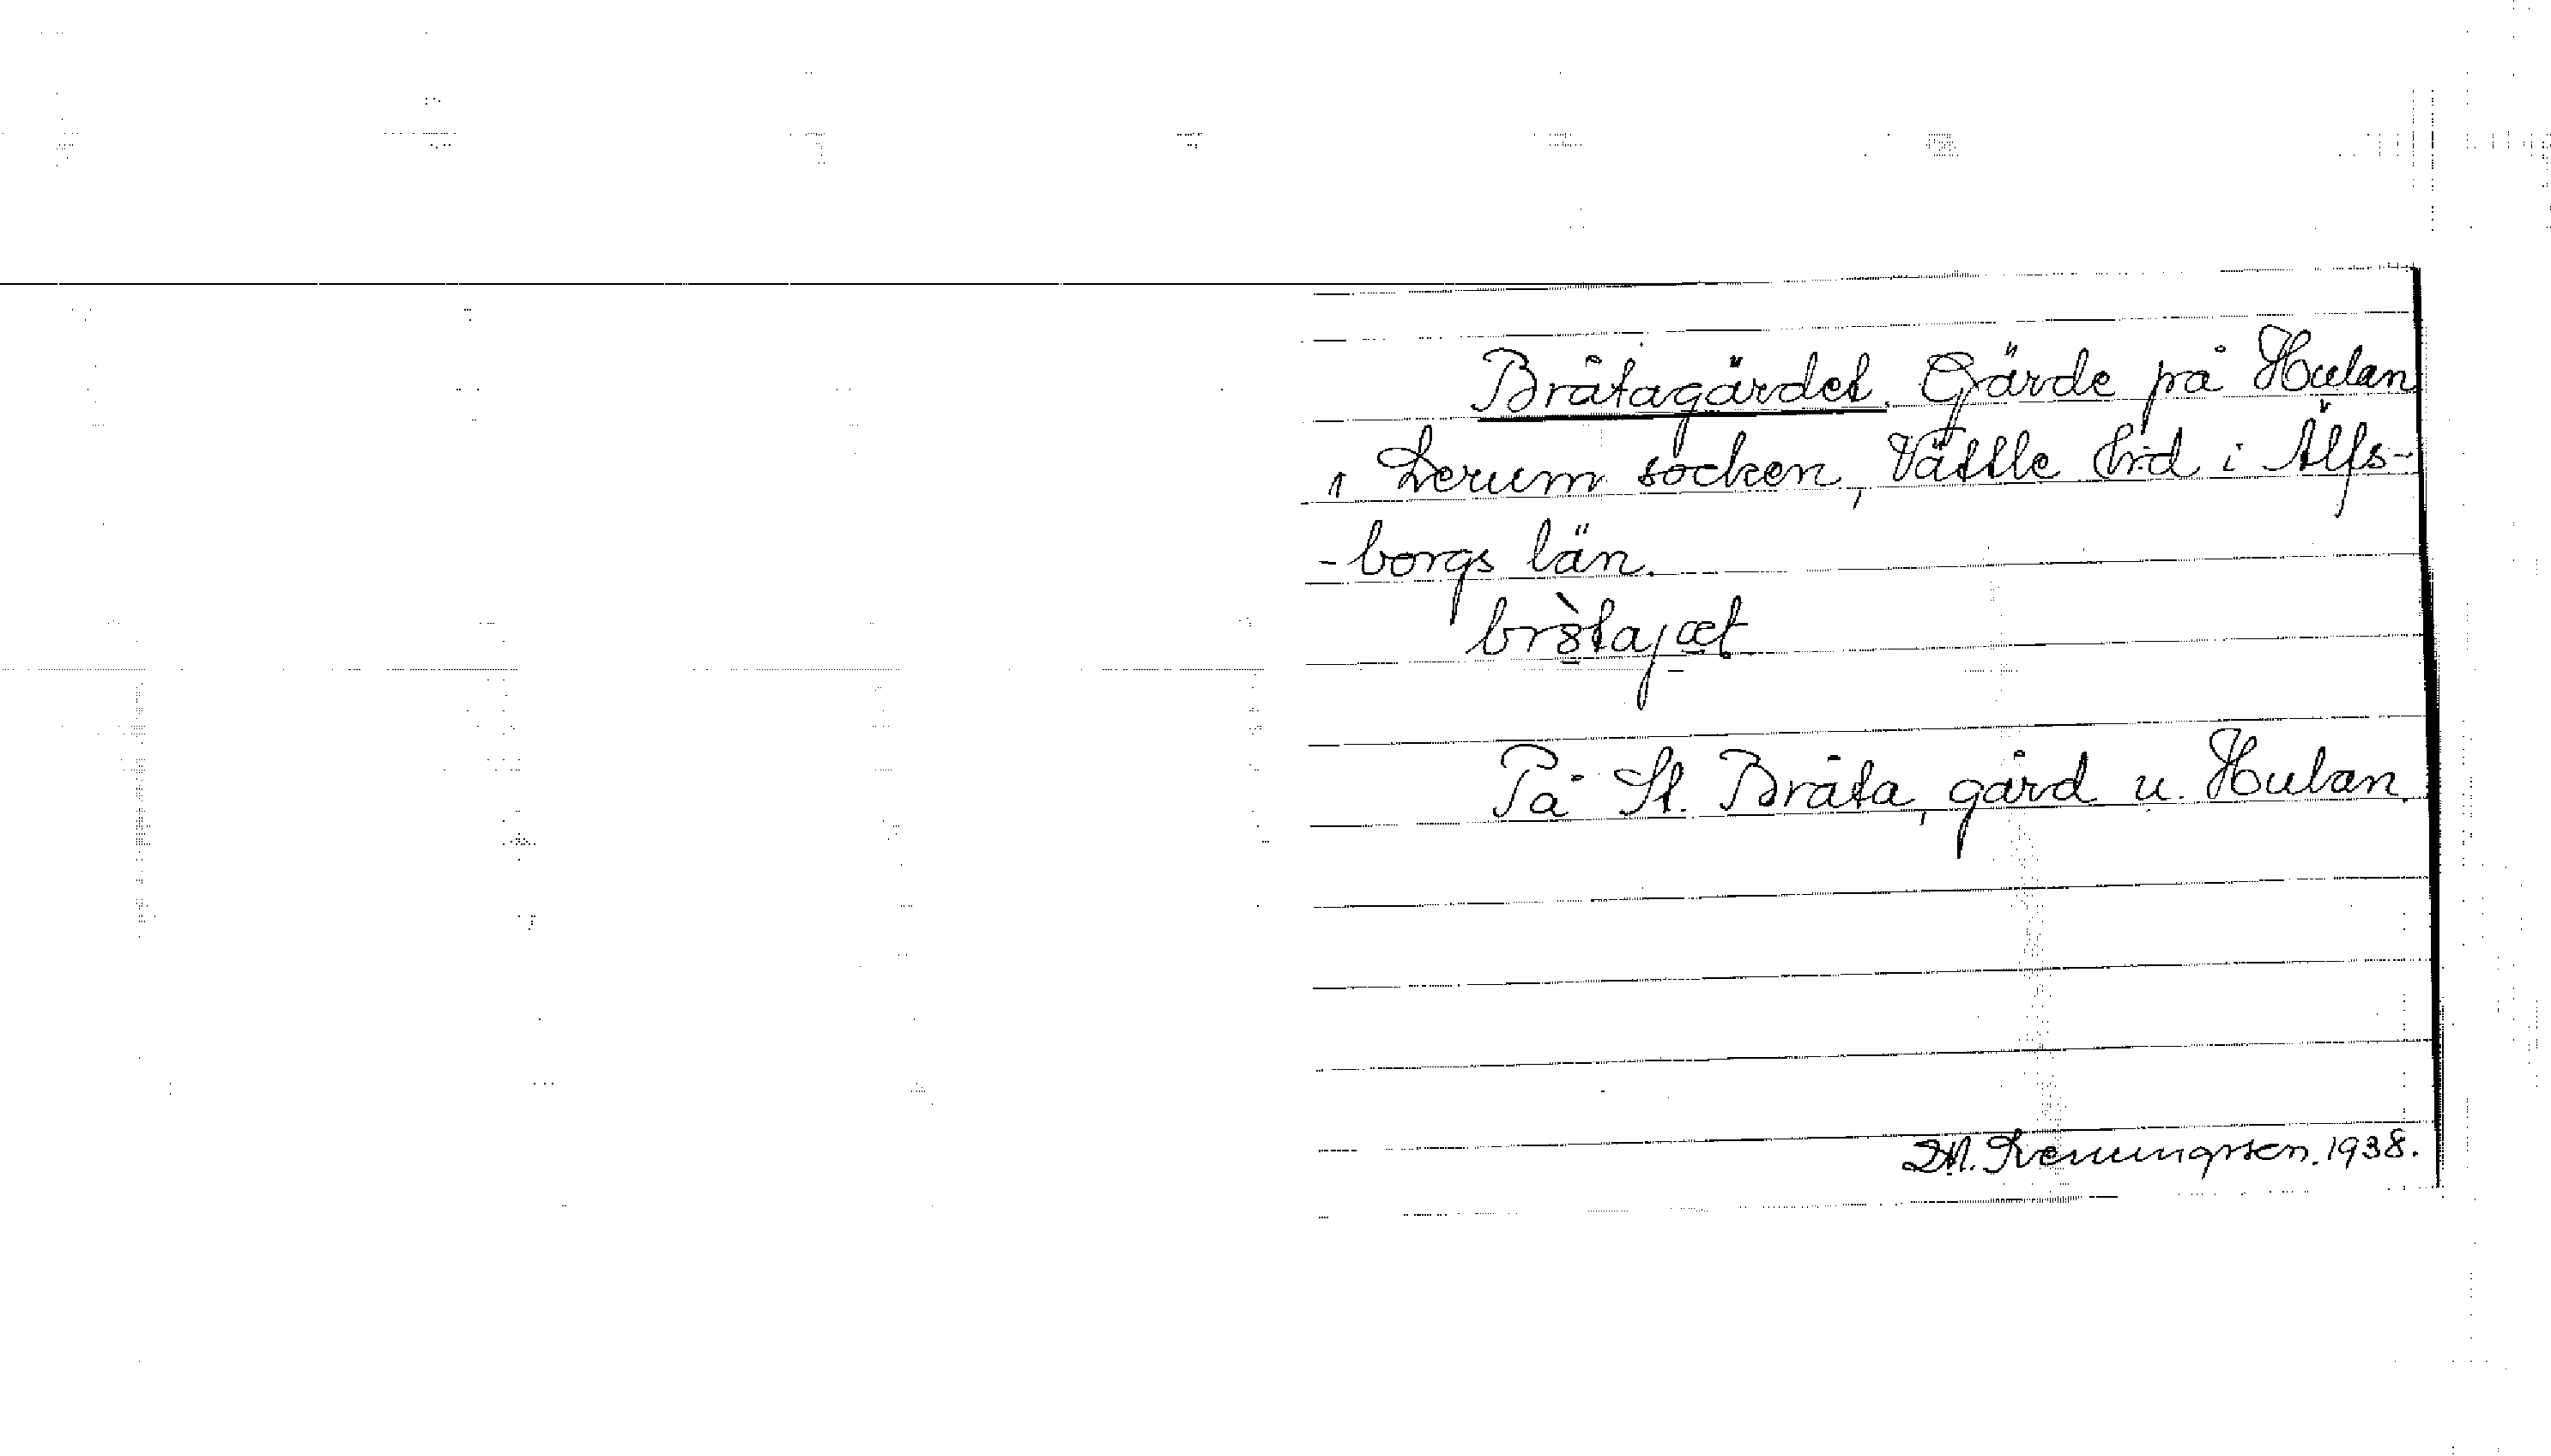 Bråtagärdet. Gärde på Hulan
i Lerum socken, Vättle hd i Älfs-
-borgs län.
På St. Bråta, gård u. Hulan.
1938.